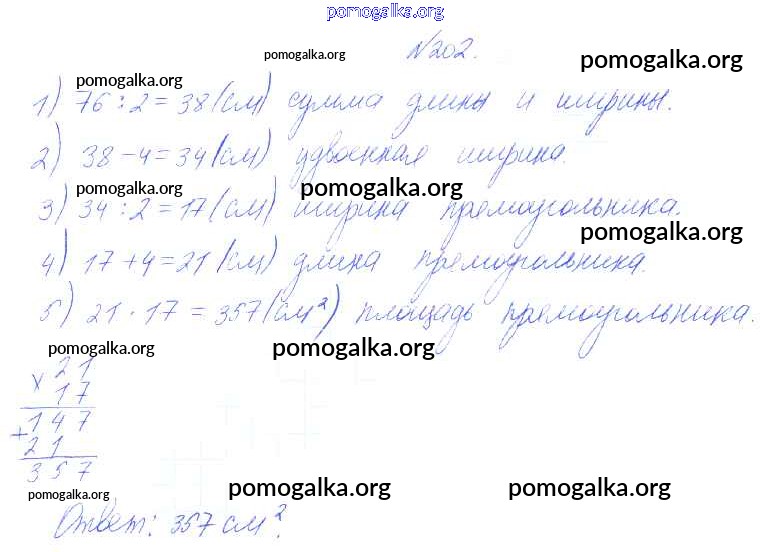 pomogalka.org
№202.
pomogalka.org
pomogalka.org
pomogalka.org
1) 76 : 2 = 38 (см) сумма длины и ширины.
2) 38 - 4 = 34 (см) удвоенная ширина.
pomogalka.org
pomogalka.org
3) 34 : 2 = 17 (см) ширина прямоугольника.
pomogalka.org
4) 17 + 4 = 21 (см) длина прямоугольника.
5) 21 · 17 = 357 (см²) площадь прямоугольника.
pomogalka.org
pomogalka.org
21
× 17
147
+ 21
357
pomogalka.org
pomogalka.org
pomogalka.org
Ответ: 357 см².